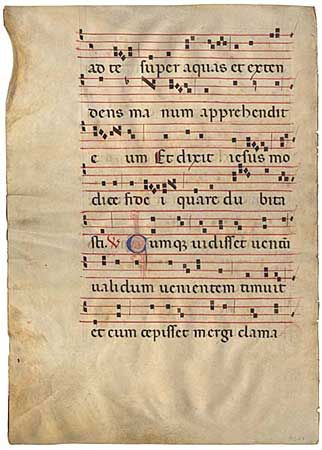 ad te super aquas et exten
dens ma num apprehendit
e um Et dixit iesus mo
dice fide i quare du bita
sti. ℣ Cumq; uidisset uentũ
ualidum uenientem timuit
et cum cepisset mergi clama